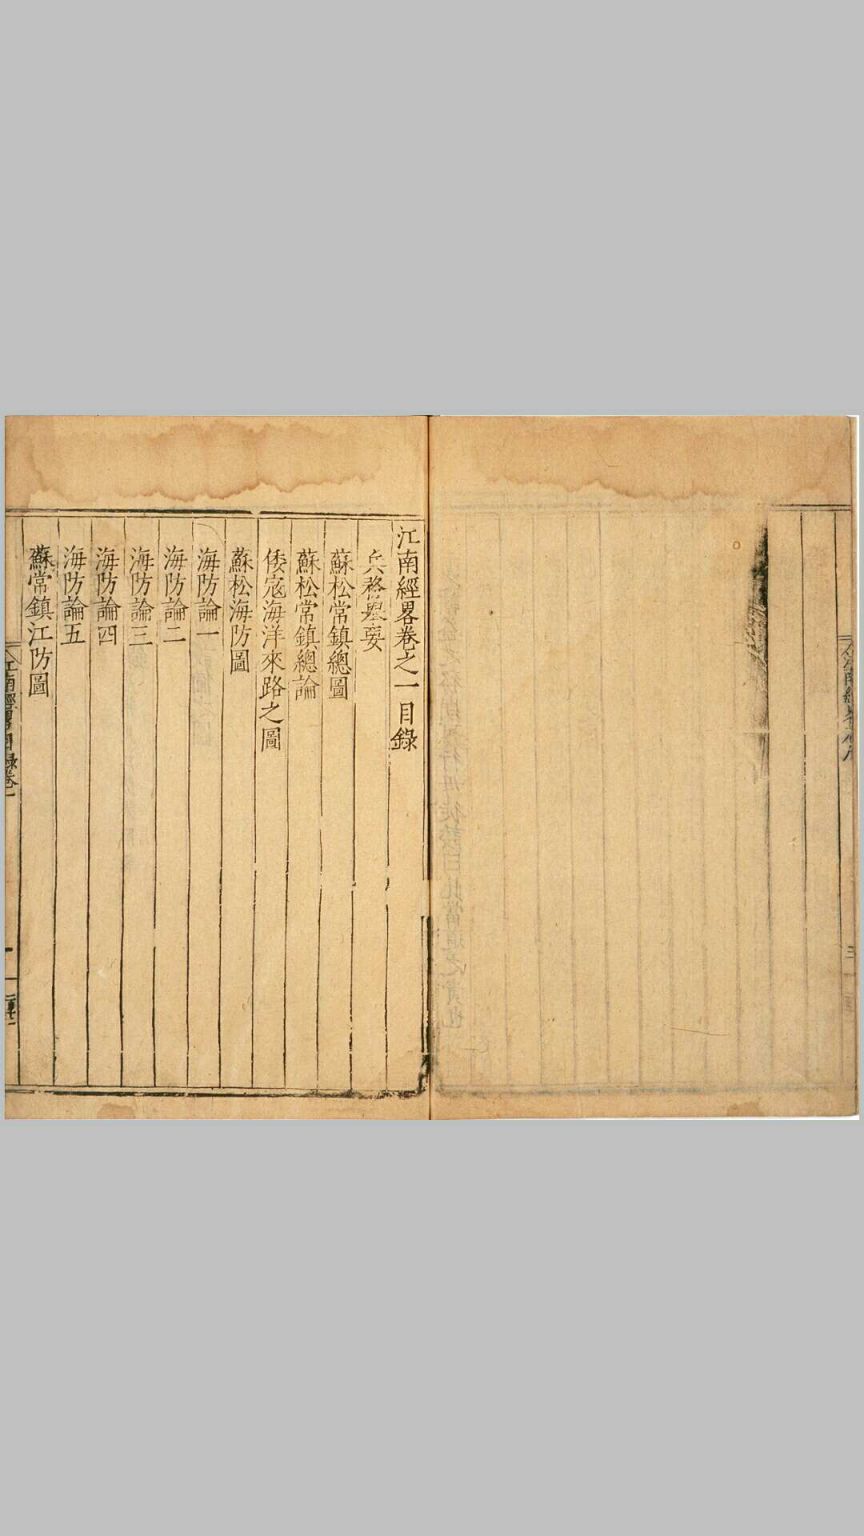 江南經畧卷之一目錄
兵務舉要
蘇松常鎮總圖
蘇松常鎮總論
倭寇海洋來路之圖
蘇松海防圖
海防論一
海防論二
海防論三
海防論四
海防論五
蘇常鎮江防圖
江南經畧目錄卷一